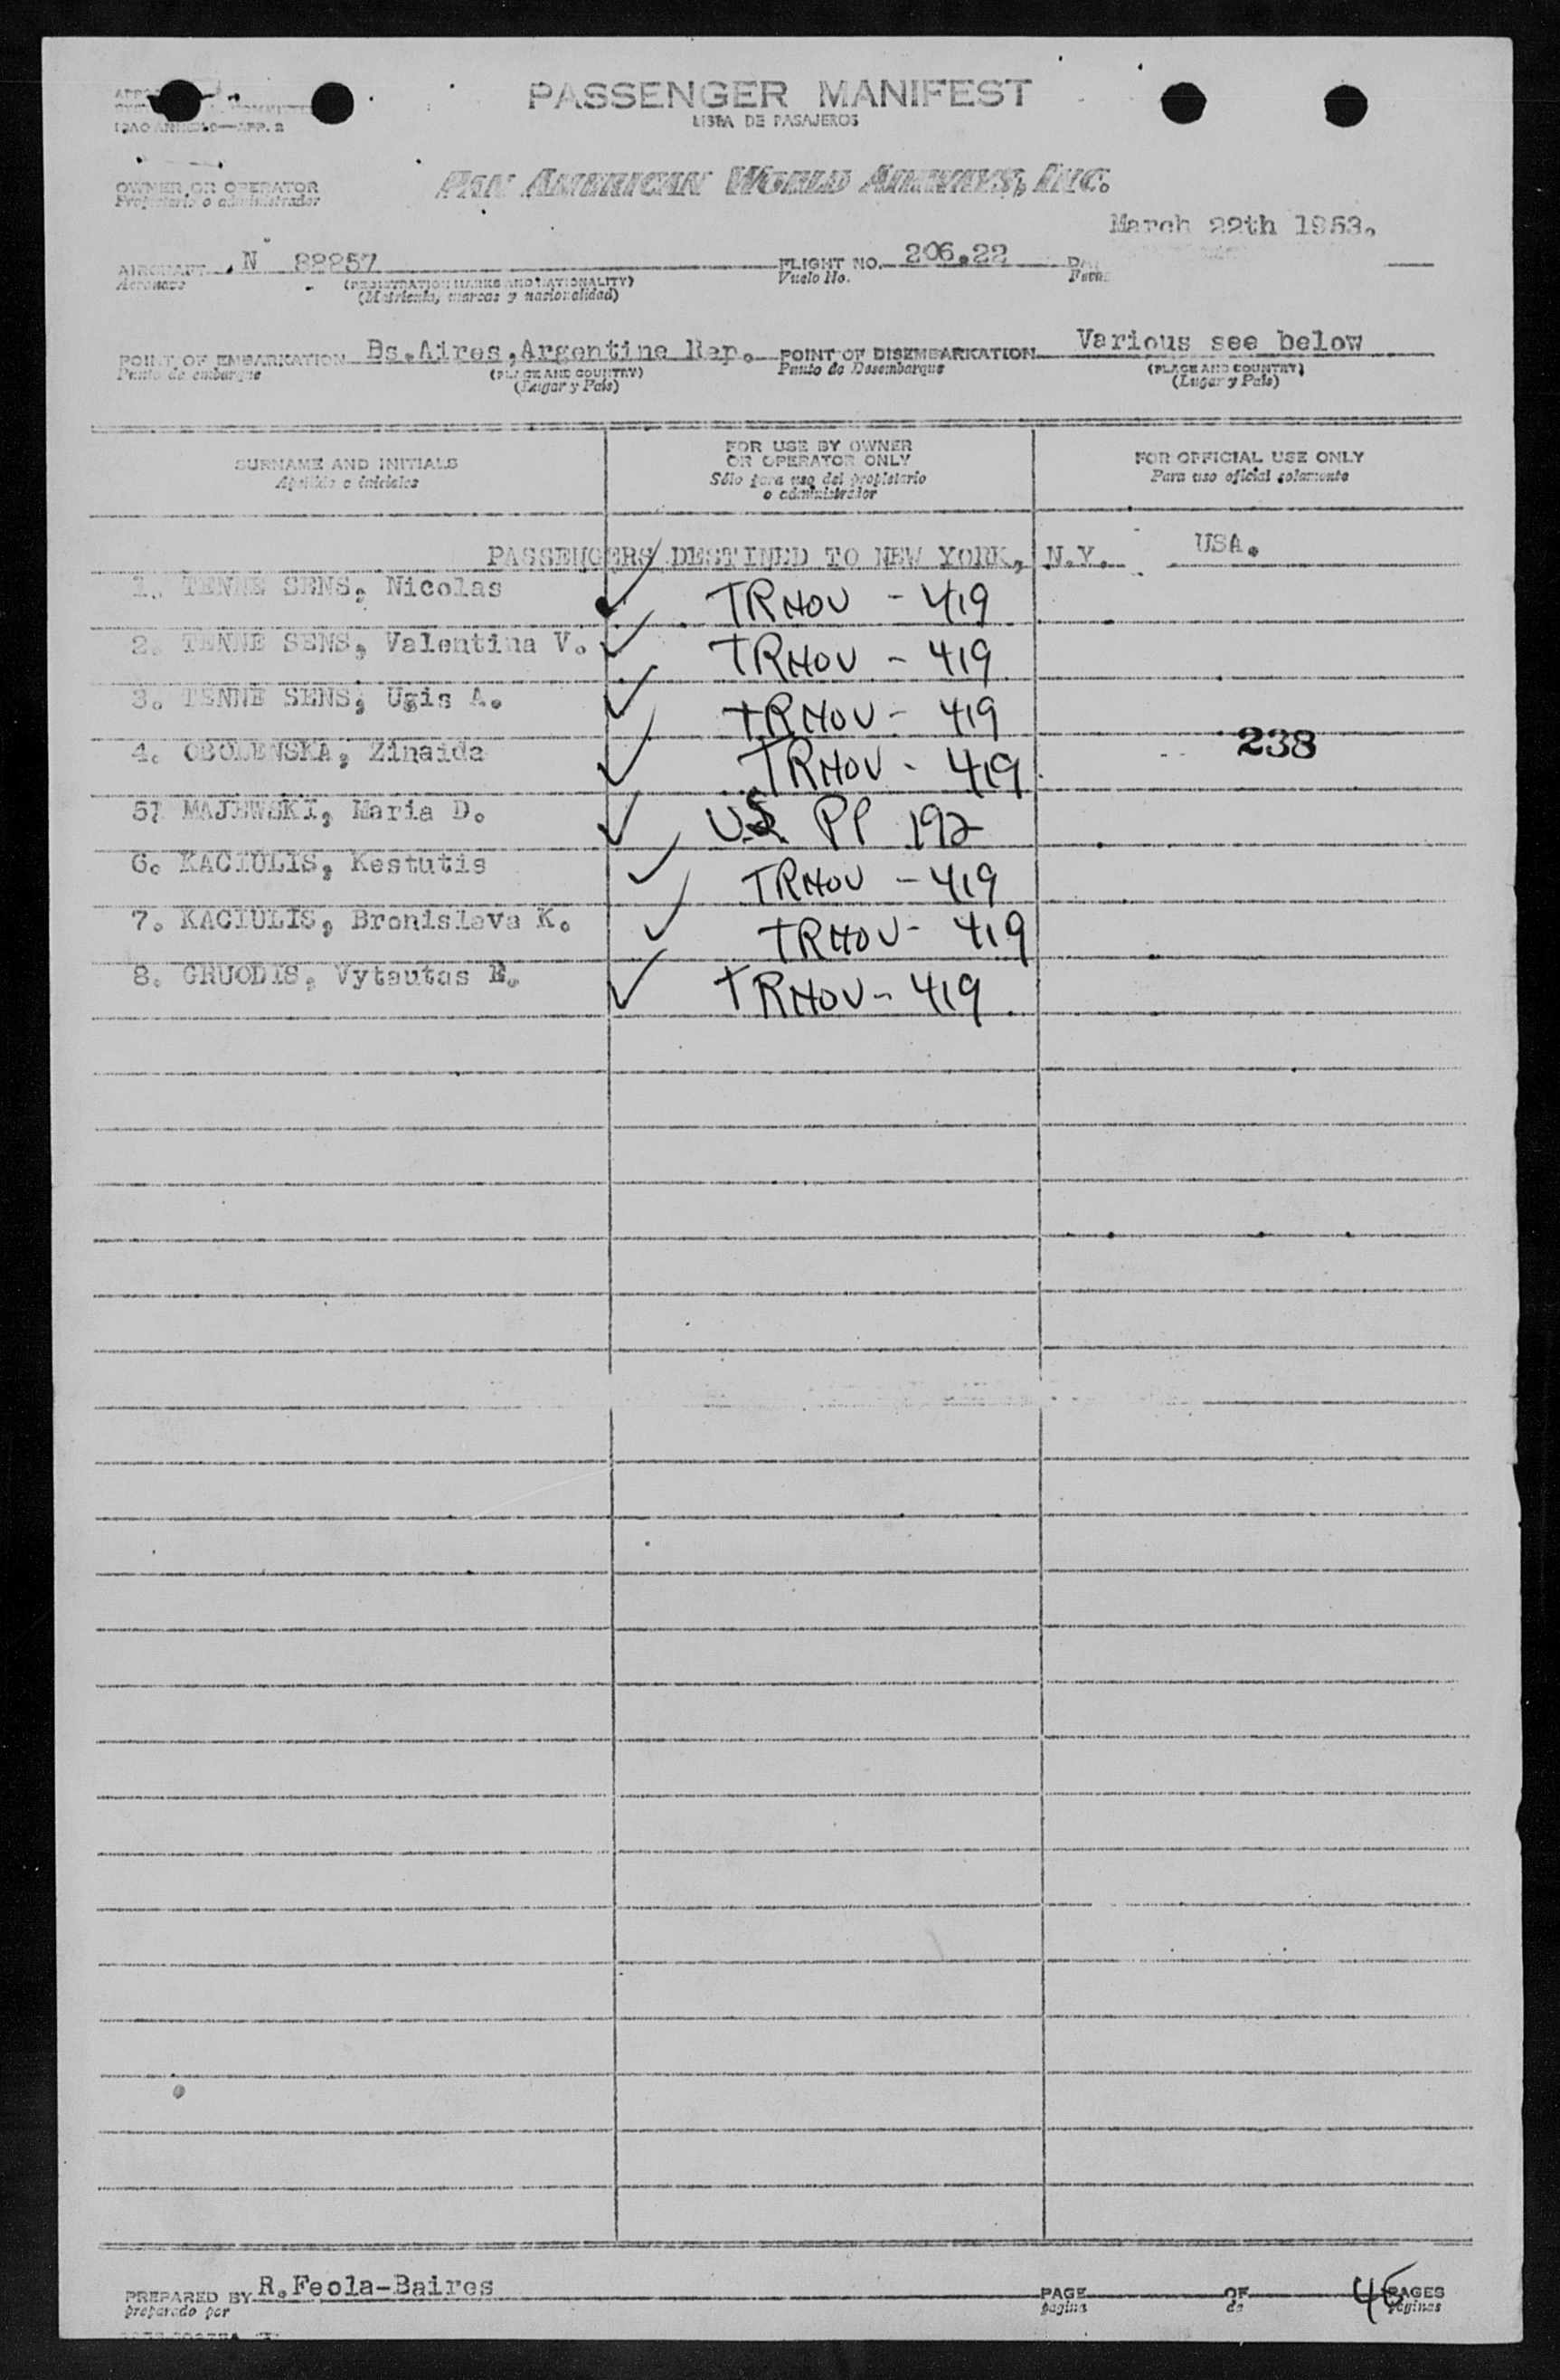 PASSENGER MANIFEST
LISTA DE PASAJEROS
OWNER OR OPERATOR
Propietario o administrador
PAN AMERICAN WORLD AIRWAYS, INC.
March 22th 1953.
AIRCRAFT N 88857 FLIGHT NO. 206.22
Aeronave (REGISTRATION MARKS AND NATIONALITY) Vuelo No.
(Matrícula, marcas y nacionalidad)
POINT OF EMBARKATION Bs.Aires,Argentine Rep. POINT OF DISEMBARKATION Various see below
Punto de embarque (PLACE AND COUNTRY) Punto de Desembarque (PLACE AND COUNTRY)
(Lugar y País) (Lugar y País)
SURNAME AND INITIALS
Apellido e iniciales
FOR USE BY OWNER
OR OPERATOR ONLY
Sólo para uso del propietario
o administrador
FOR OFFICIAL USE ONLY
Para uso oficial solamente
PASSENGERS DESTINED TO NEW YORK, N.Y. USA.
1. TENNE SENS, Nicolas TRHOV - 419
2. TENNE SENS, Valentina V. TRHOV - 419
3. TENNE SENS, Ugis A. TRHOV - 419
4. OBOLENSKA, Zinaida TRHOV - 419 238
5. MAJEWSKI, Maria D. US PP 192
6. KACIULIS, Kestutis TRHOV - 419
7. KACIULIS, Bronislava K. TRHOV - 419
8. GRUODIS, Vytautas E. TRHOV - 419
PREPARED BY R.Feola-Baires PAGE OF PAGES
preparado por pagina de páginas